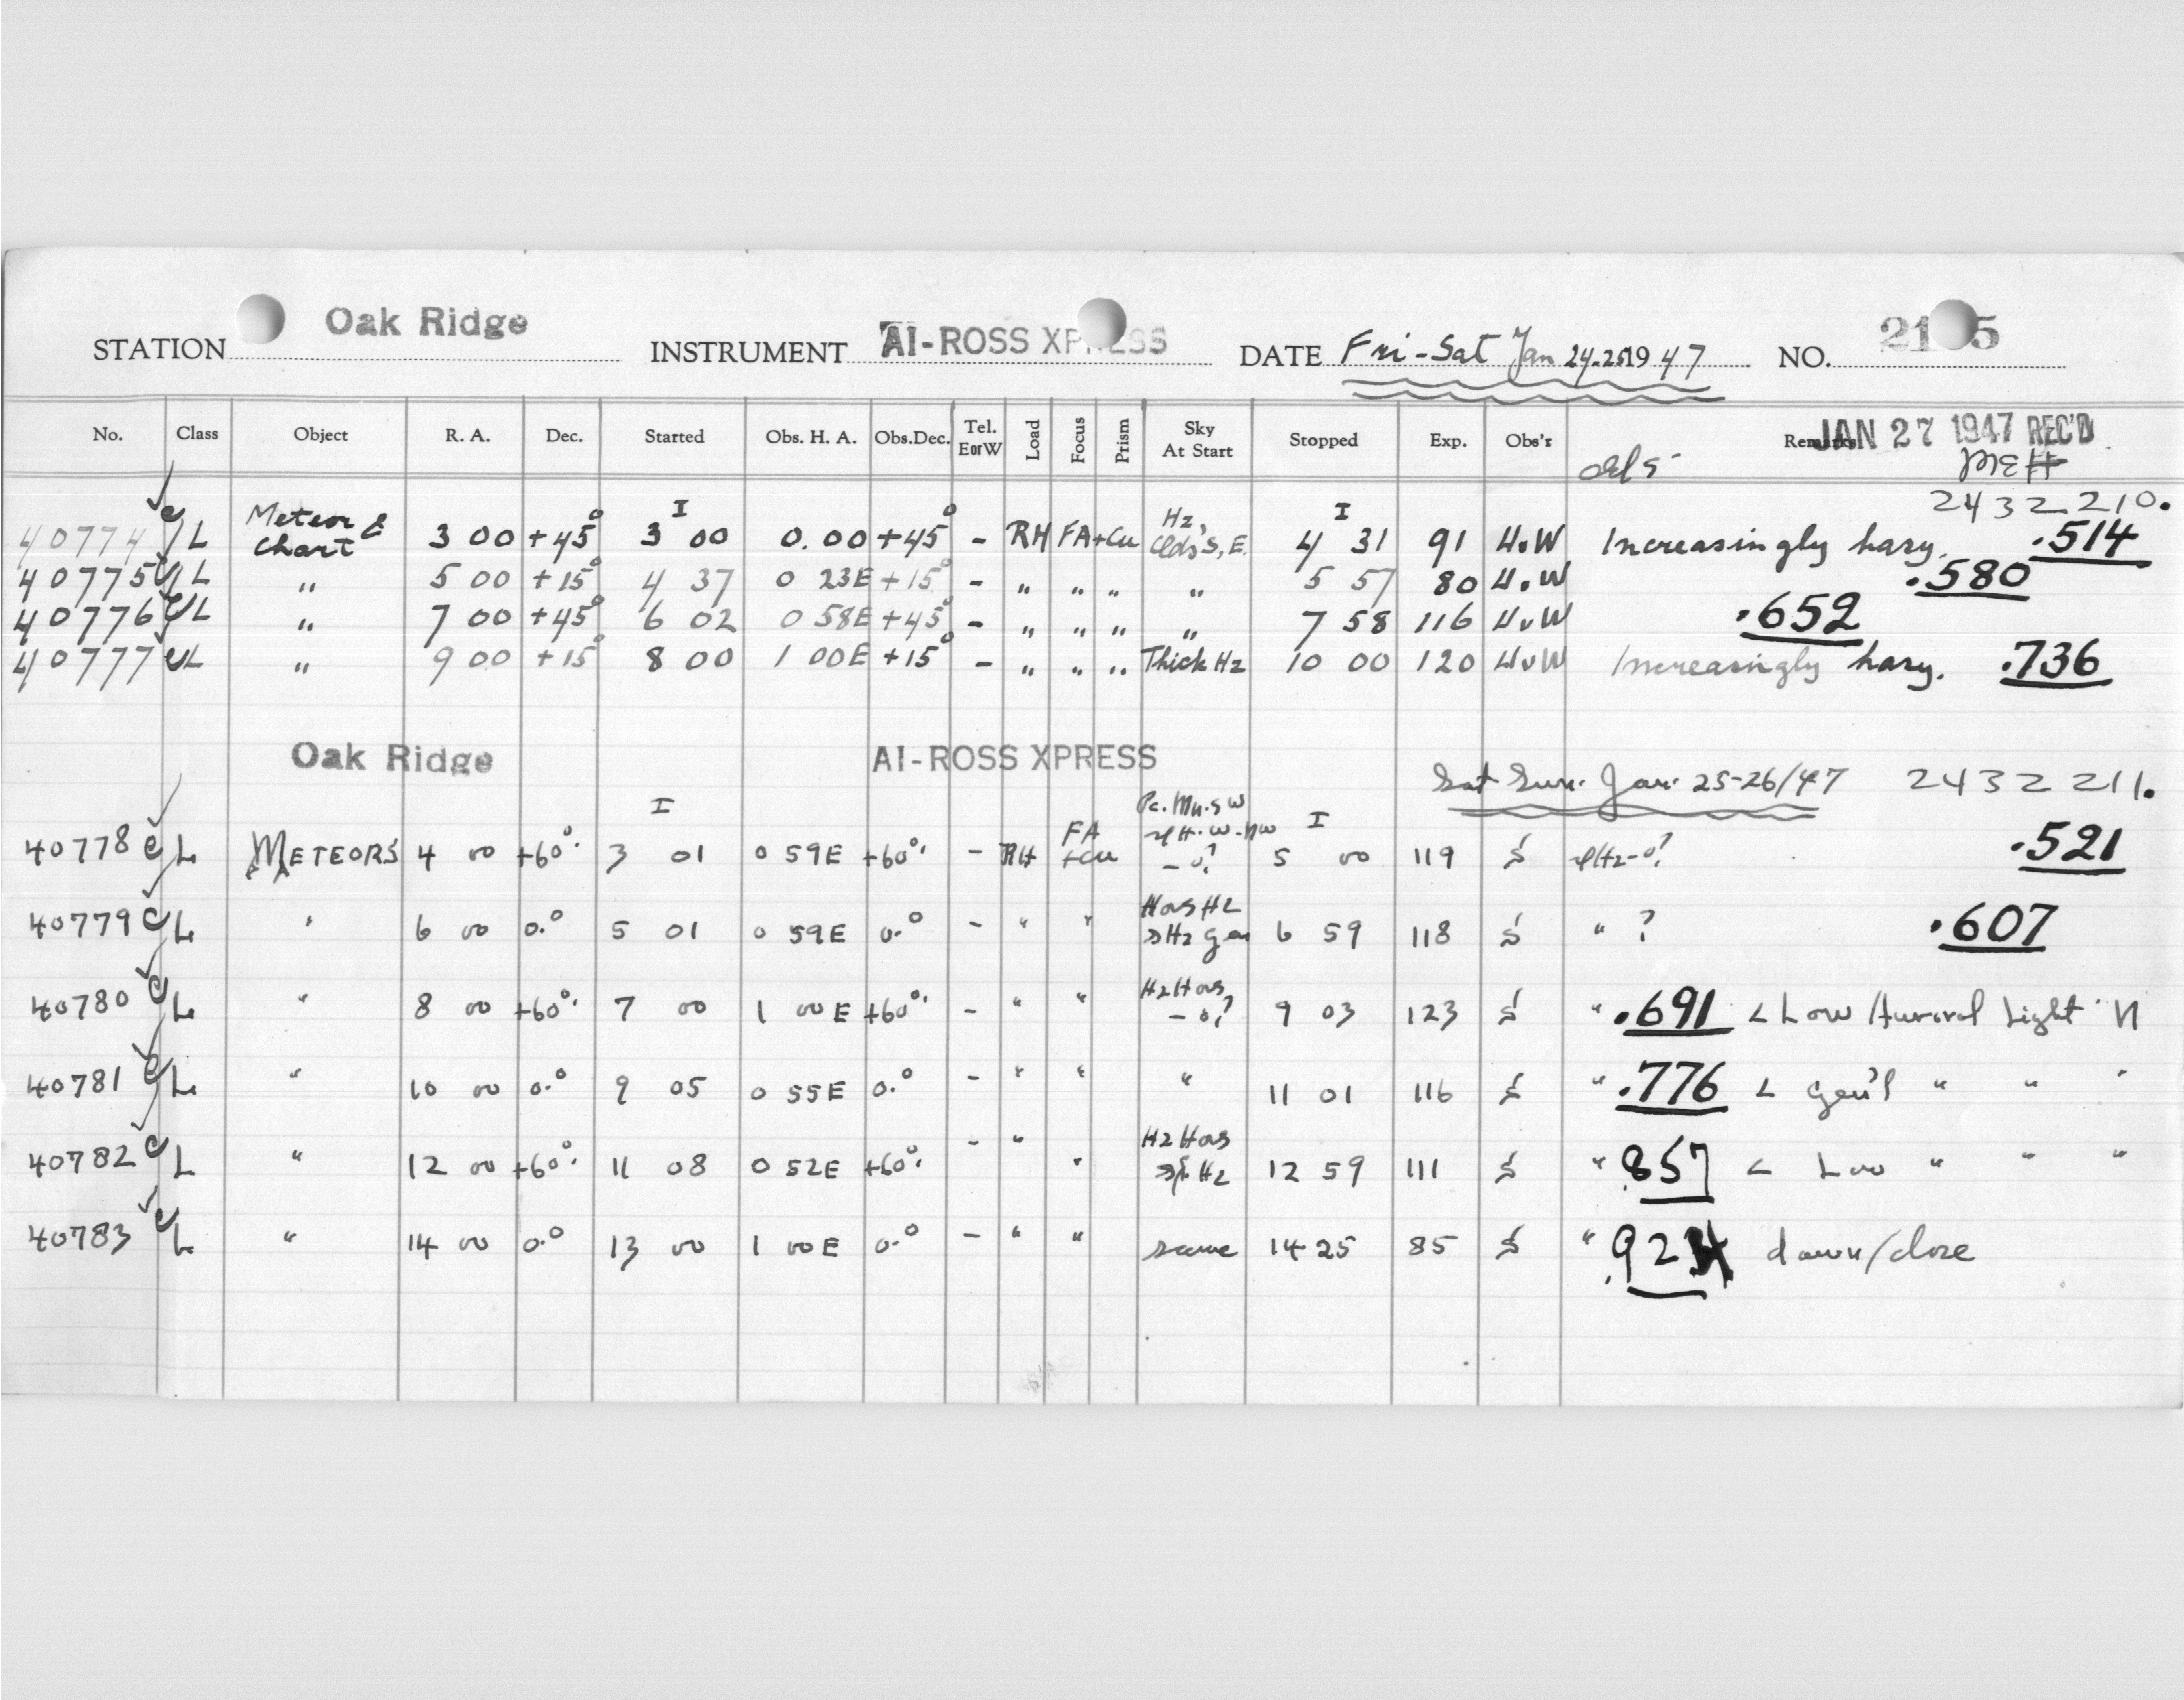 STATION Oak Ridge INSTRUMENT AI-ROSS XPRESS DATE Fri-Sat Jan 24-25 1947 NO. 21 5
No. Class Object R. A. Dec. Started Obs. H. A. Obs.Dec. Tel. EorW Load Focus Prism Sky At Start Stopped Exp. Obs'r Remarks
JAN 27 1947 REC'D
MEH
2432210.
40774 e/L Meteor & Chart 3 00 +45° I 3 00 0.00 +45° - RH FA+Cu Hz, Clds S, E. I 4 31 91 H.W Increasingly hazy. .514
40775 e/L " 5 00 +15° 4 37 0 23E +15° - " " " " 5 57 80 H.W .580
40776 e/L " 7 00 +45° 6 02 0 58E +45° - " " " " 7 58 116 HvW .652
40777 eL " 9 00 +15° 8 00 1 00E +15° - " " " Thick Hz 10 00 120 HvW Increasingly hazy. .736
Oak Ridge AI-ROSS XPRESS Sat Sun. Jan. 25-26/47 2432211.
40778 e L METEORS 4 00 +60°. I 3 01 0 59E +60°. - RH FA +Cu I 5 00 119 .521
40779 e L " 6 00 0.° 5 01 0 59E 0.° - " " 6 59 118 " ? .607
40780 e L " 8 00 +60°. 7 00 1 00 E +60°. - " " 9 03 123 " .691 < Low Auroral Light N
40781 e L " 10 00 0.° 9 05 0 55E 0.° - " " " 11 01 116 " .776 < Gen'l " " "
40782 e L " 12 00 +60°. 11 08 0 52E +60°. - " " 12 59 111 " .857 < Low " " "
40783 e L " 14 00 0.° 13 00 1 00E 0.° - " " same 14 25 85 " .924 dawn/close